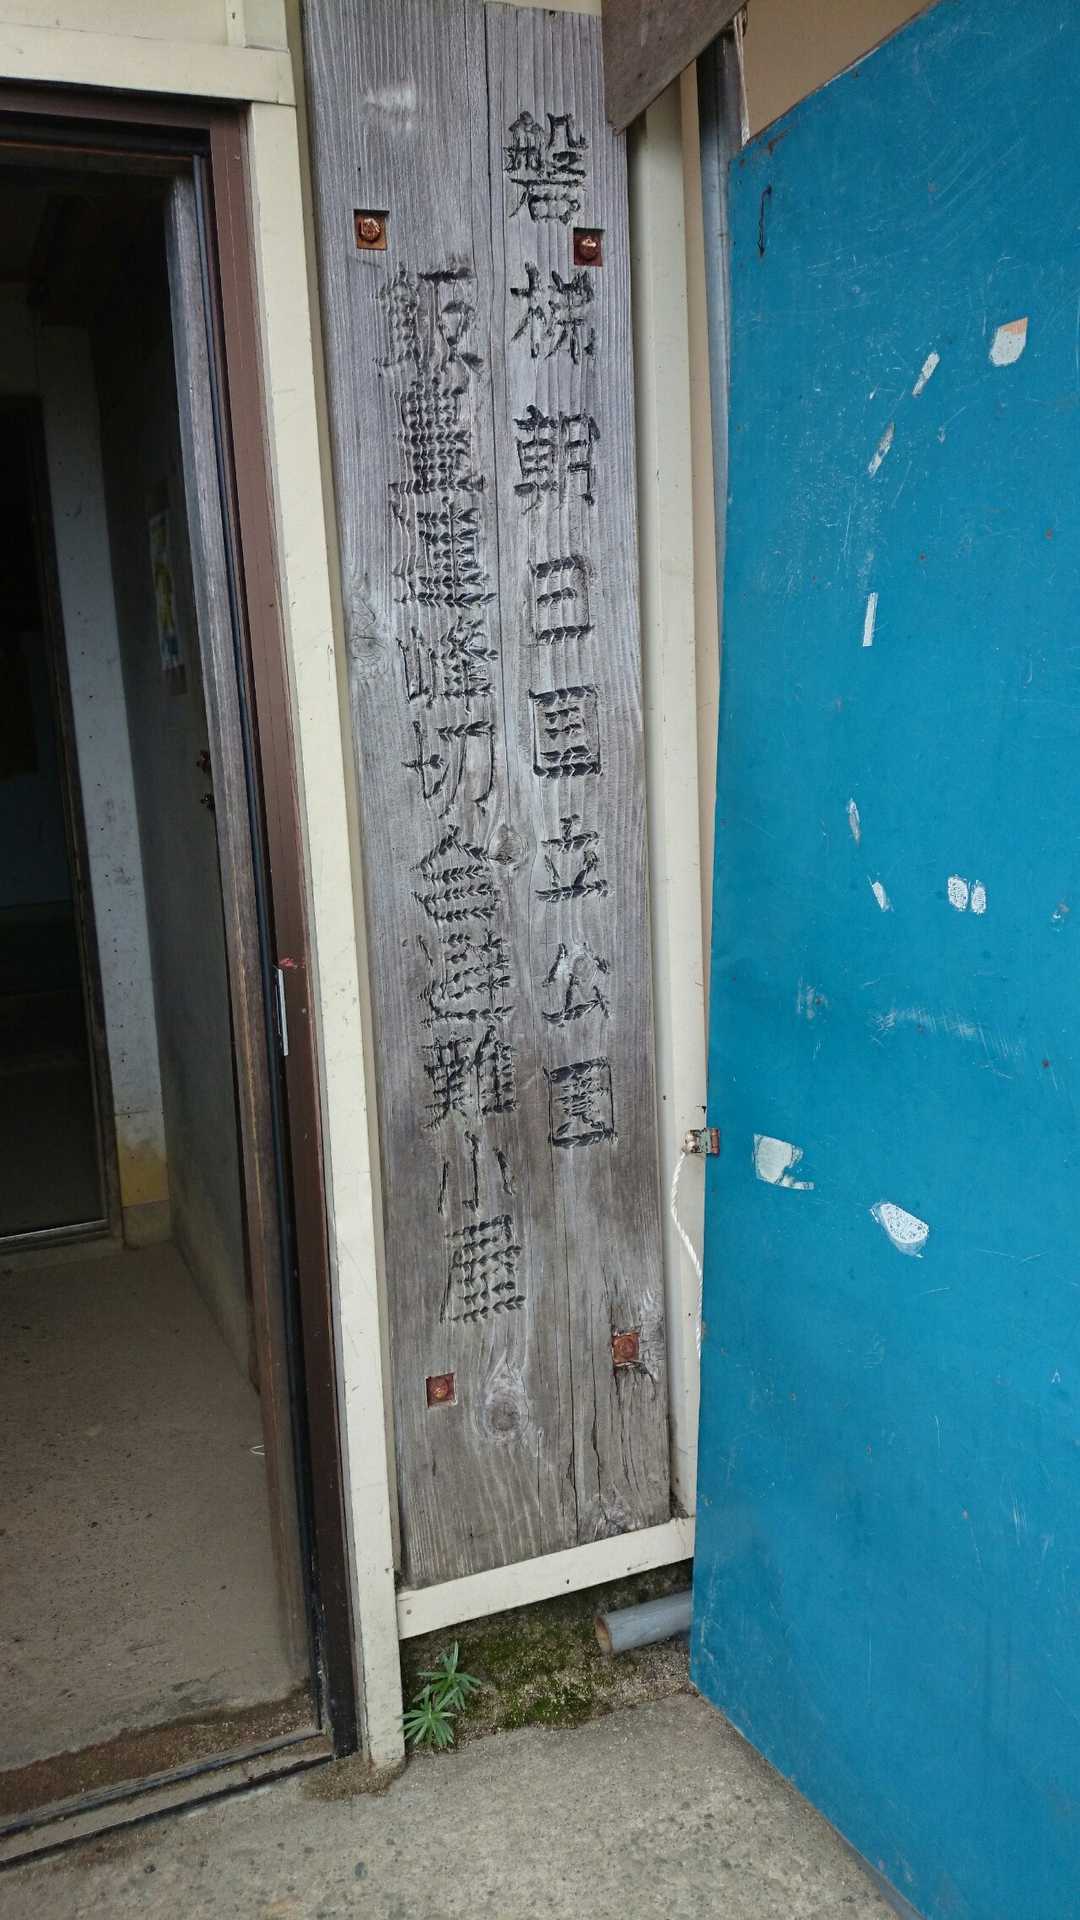 磐梯朝日国立公園
飯豊連峰切合避難小屋